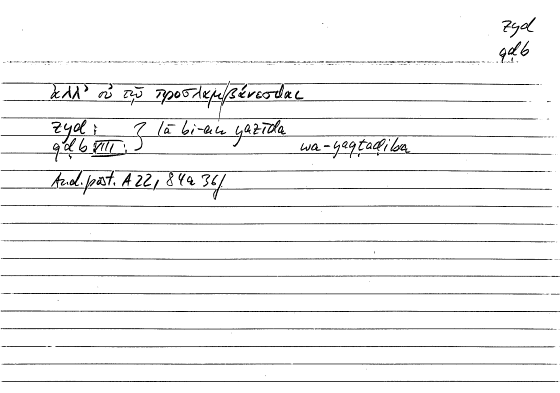 zyd
qḍb
ἀλλ' οὐ τῷ προσλαμ/βάνεσθαι
zyd : } lā bi-an yazīda
qḍb VIII : wa-yaqtaḍiba
And.post. A 22, 84a 36/